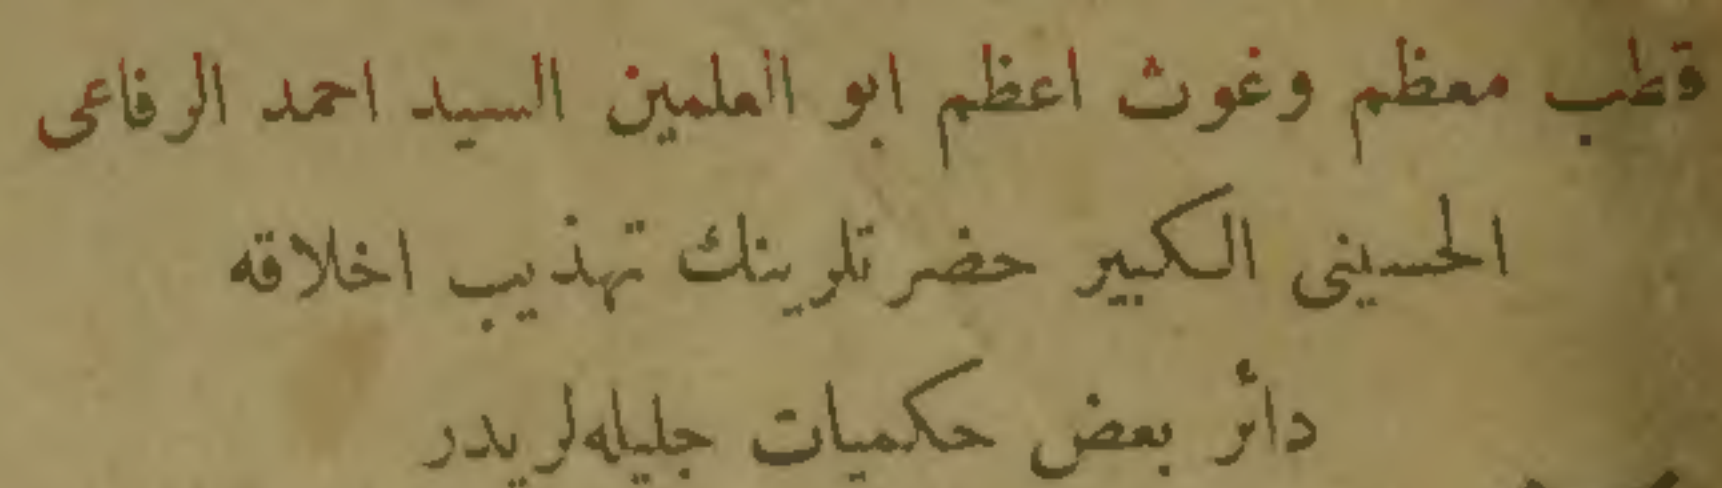 قطب معظم وغوث اعظم ابو العلمين السيد احمد الرفاعى
الحسينى الكبير حضرتلرينك تهذيب اخلاقه
دائر بعض حكميات جليله‌لريدر